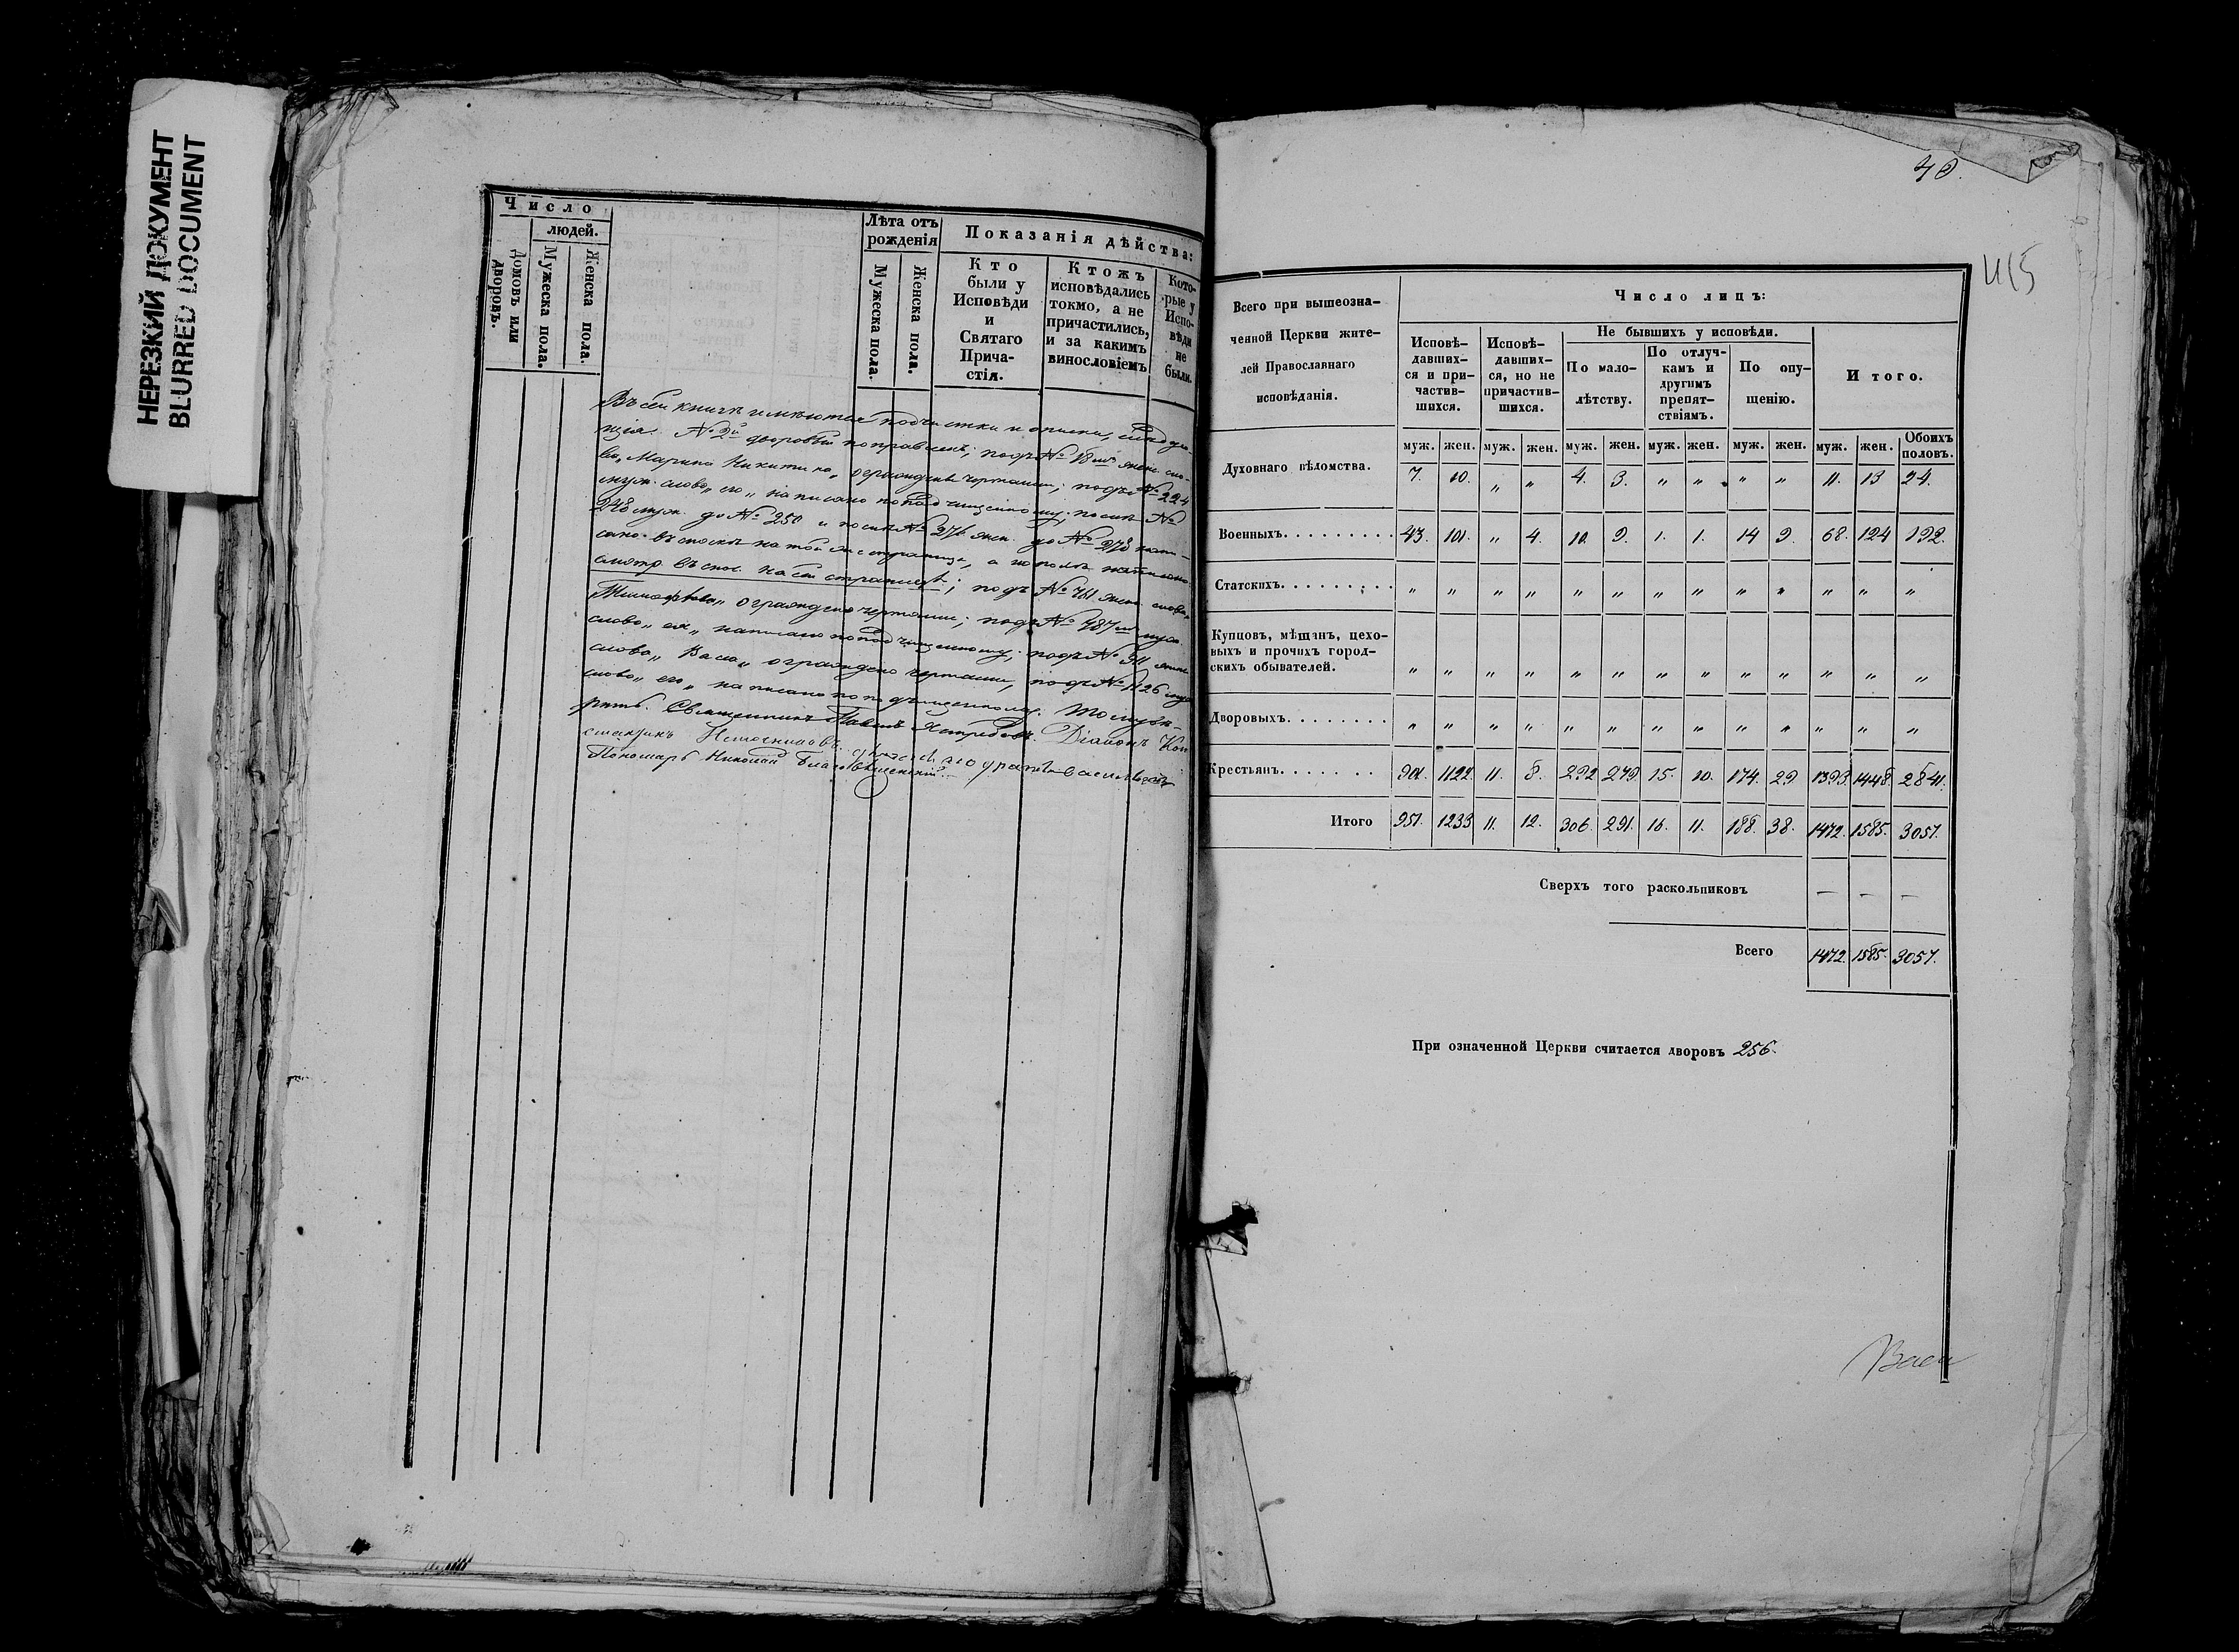 НЕРЕЗКИЙ ДОКУМЕНТ
BLURRED DOCUMENT
Число
людей.
Домовъ или дворовъ.
Мужеска пола.
Женска пола.
Лѣта отъ рожденія
Мужеска пола.
Женска пола.
Показанія дѣйства:
Кто были у Исповѣди и Святаго Прича-стія.
Ктожъ исповѣдались токмо, а не причастились, и за какимъ винословіемъ
Кото-рые у Испо-вѣди не были.
Въ сей книгѣ имѣются подчистки и описки, слѣдую-
щія. № 2й дворовый поправленъ; подъ № 18мъ женс. сло-
ва „Марина Никитина„ ограждены чертами; подъ № 224
муж. слово „его„ написано по подчищенному; послѣ №
248 муж. до № 250 и послѣ № 276 жен. до № 278 напи-
сано въ сноскѣ на той же страницѣ, а
смотр. въ снос. на сей страницѣ; подъ № 461 женс. слово
„Тимофѣева„ ограждено чертами; подъ № 487мъ муж.
слово „ея„ написано по подчищенному; подъ № 911 женс.
слово „Васил„ ограждено чертами, подъ № 1126 муж
слово „его„ написано по подчищенному.
Священникъ Павелъ Ястребовъ. Діаконъ Кон-
стантинъ
Пономарь Николай Благовѣщенскій.
40.
415
Всего при вышеозна-
ченной Церкви жите-
лей Православнаго
исповѣданія.
Число лицъ:
Исповѣ-давших-ся и при-частив-шихся.
Исповѣ-давших-ся, но не причастив-шихся.
Не бывшихъ у исповѣди.
По мало-лѣтству.
По отлуч-камъ и другимъ препят-ствіямъ.
По опу-щенію.
Итого.
муж. жен. муж. жен. муж. жен. муж. жен. муж. жен. муж. жен. Обоихъ половъ.
Духовнаго вѣдомства. 7. 10. „ „ 4. 3. „ „ „ „ 11. 13 24.
Военныхъ. 43. 101. „ 4. 10. 9. 1. 1. 14 9. 68. 124 192.
Статскихъ. „ „ „ „ „ „ „ „ „ „ „ „ „
Купцовъ, мѣщанъ, цехо-
выхъ и прочихъ город-
скихъ обывателей. „ „ „ „ „ „ „ „ „ „ „ „ „
Дворовыхъ. „ „ „ „ „ „ „ „ „ „ „ „ „
Крестьянъ. 901. 1122. 11. 8. 292 279. 15. 10. 174. 29 1393. 1448. 2841.
Итого 951. 1233 11. 12. 306. 291. 16. 11. 188. 38. 1472. 1585. 3057.
Сверхъ того раскольниковъ — — —
Всего 1472. 1585. 3057.
При означенной Церкви считается дворовъ 256.